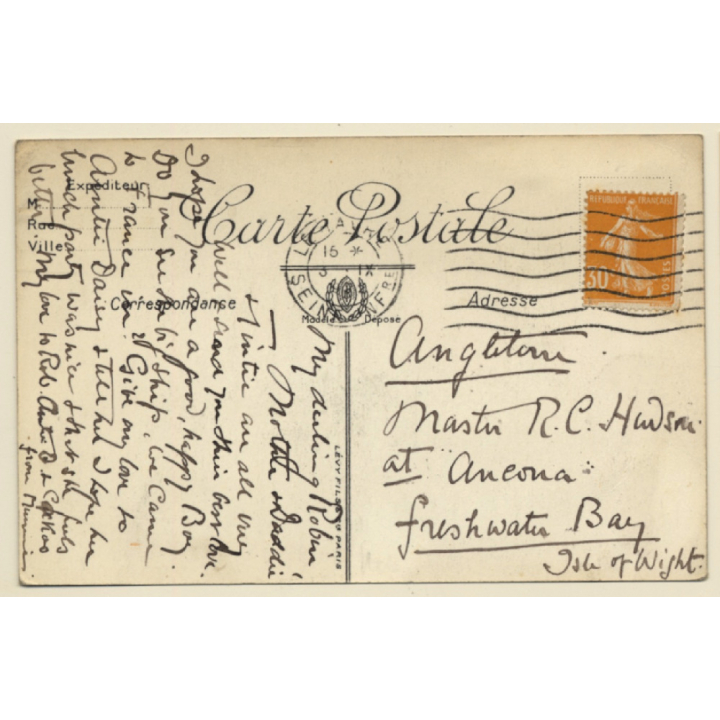 Carte Postale
Expéditeur
M
Rue
Ville
Correspondance
Adresse
Modèle Déposé
LÉVY FILS PARIS
RÉPUBLIQUE FRANÇAISE
30
POSTES
LE HAVRE
15
SEINE INFRE
Angleterre
Master R. C. Hudson
at Ancona
Freshwater Bay
Isle of Wight.
My darling Robin
Mother & Daddie
& are all very
well send you their best love.
I hope you are a good, happy Boy.
Do you see the big ship, we came
to France in? Give my love to
Auntie Daisy & tell her I hope her
lunch party was nice & that she feels
better. My love to Rob. Aunt D &
from Mummie.